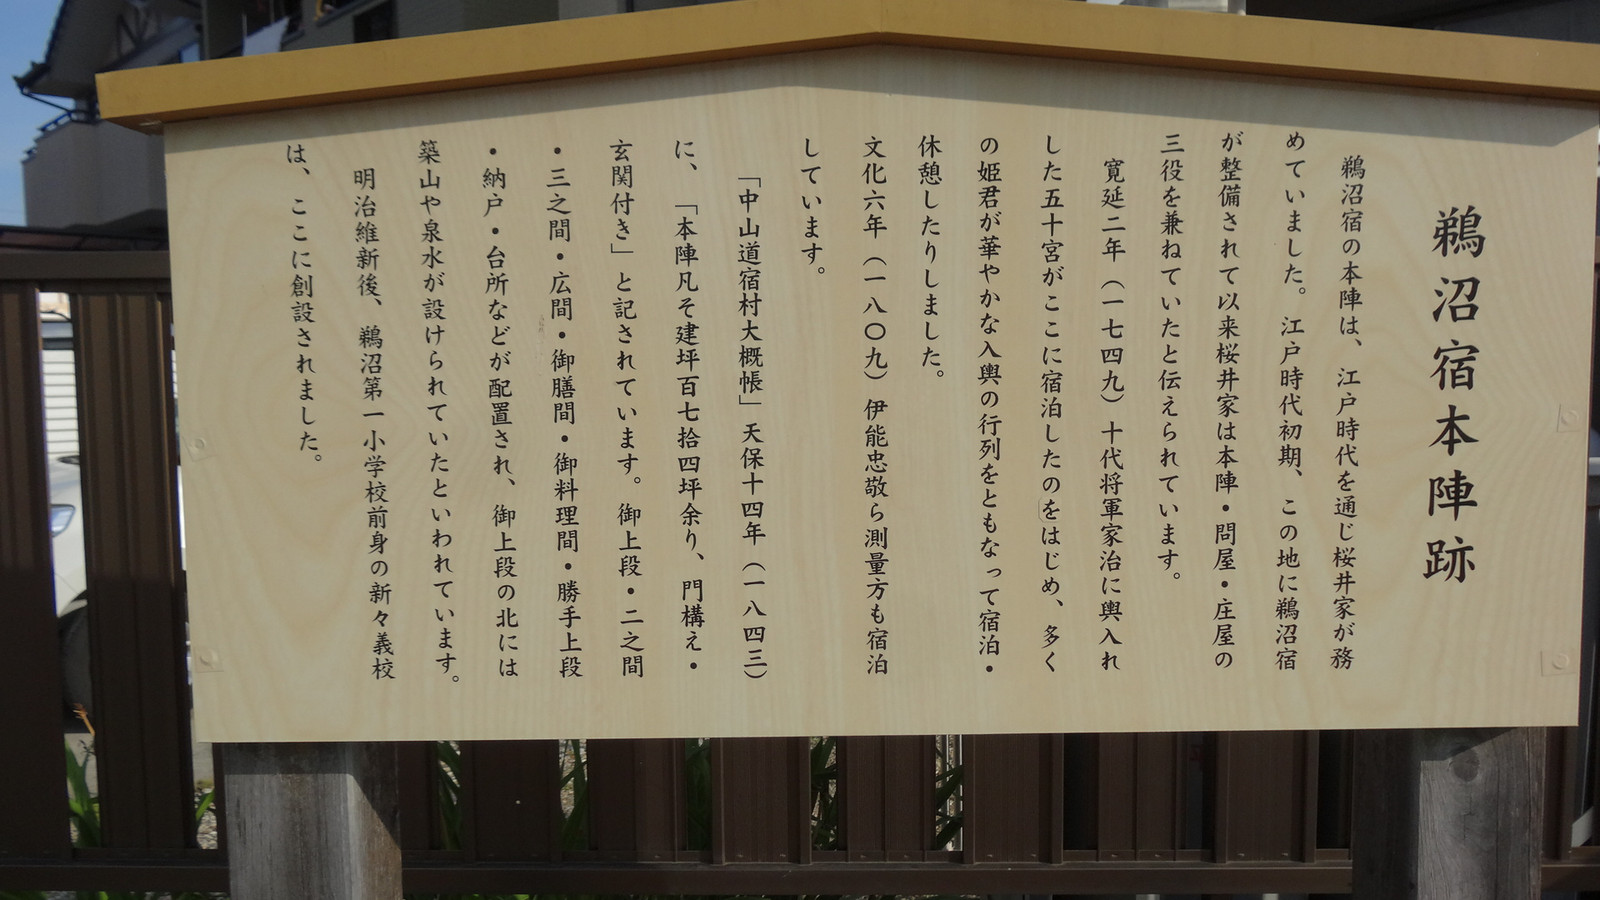 鵜沼宿本陣跡
鵜沼宿の本陣は、江戸時代を通じ桜井家が務
めていました。江戸時代初期、この地に鵜沼宿
が整備されて以来桜井家は本陣・問屋・庄屋の
三役を兼ねていたと伝えられています。
寛延二年（一七四九）十代将軍家治に輿入れ
した五十宮がここに宿泊したのをはじめ、多く
の姫君が華やかな入輿の行列をともなって宿泊・
休憩したりしました。
文化六年（一八〇九）伊能忠敬ら測量方も宿泊
しています。
「中山道宿村大概帳」天保十四年（一八四三）
に、「本陣凡そ建坪百七拾四坪余り、門構え・
玄関付き」と記されています。御上段・二之間
・三之間・広間・御膳間・御料理間・勝手上段
・納戸・台所などが配置され、御上段の北には
築山や泉水が設けられていたといわれています。
明治維新後、鵜沼第一小学校前身の新々義校
は、ここに創設されました。